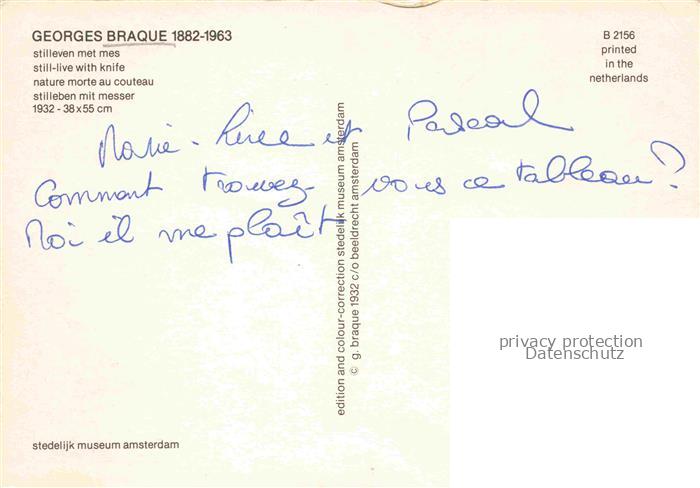 GEORGES BRAQUE 1882-1963
stilleven met mes
still-live with knife
nature morte au couteau
stilleben mit messer
1932 - 38 x 55 cm
B 2156
printed
in the
netherlands
Marie- et Pascal
Comment trouvez-vous ce tableau?
Moi il me plaît
edition and colour-correction stedelijk museum amsterdam
© g. braque 1932 c/o beeldrecht amsterdam
privacy protection
Datenschutz
stedelijk museum amsterdam